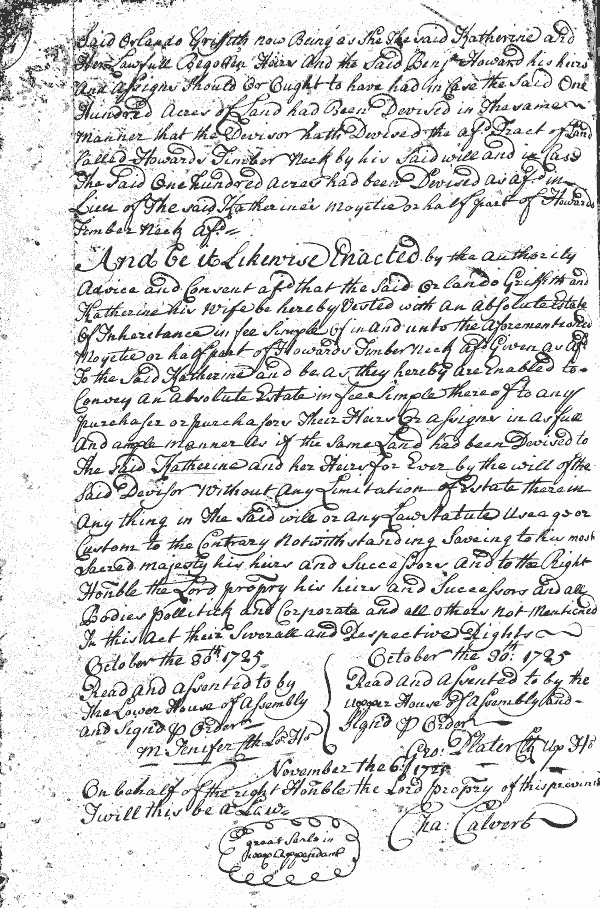 Said Orlando Griffith now Being as She The said Katherine and
Her Lawfull Begotten Heirs And the Said Benj Howard his heirs
And Assigns Should Or Ought to have had in Case the Said One
Hundred Acres of Land had Been Devised in The same
manner that the Devisor hath Devised the afd Tract of Land
Called Howards Timber Neck by his Said will and in Case
The Said One hundred acres had been Devised as afd in
Lieu of The said Katherines Moyetie or half part of Howards
Timber Neck afd
And be it Likewise Enacted by the authority
Advice and Consent afd that the Said Orlando Griffith and
Katherine his Wife be hereby Vested with An Absolute Estate
Of Inheretance in fee Simple Of in And unto the Aforementioned
Moyetie or half part of Howards Timber Neck afd Given as afd
To the Said Katherine and be as they hereby are Enabled to
Convey An Absolute Estate in fee Simple thereof to any
purchaser or purchasors Their Heirs Or assigns in as full
And ample manner as if the Same Land had been Devised to
The Said Katherine and her Heirs for Ever by the will of the
Said Devisor Without Any Limitation of Estate therein
Any thing in The Said will or any Law Statute Useage or
Custom to the Contrary Notwithstanding Saveing to his most
Sacred majesty his heirs and Successors And to the Right
Honble the Lord propry his heirs and Successors and all
Bodies Pollitick and Corporate and all others not Mentioned
In this Act their Severall and Respective Rights
October the 30th 1725
Read and assented to by
The Lower House of Assembly
and Signd p Order
M Jenifer Clk Lo Ho
October the 30th: 1725
Read and Assented to by the
upper House of Assembly and
Signd p Order
Geo: Plater Clk Up Ho
November the 6th 1725
On behalf of the right Honble the Lord propry of this province
I will this be a Law
Cha: Calvert
Great Seale in
Appendant